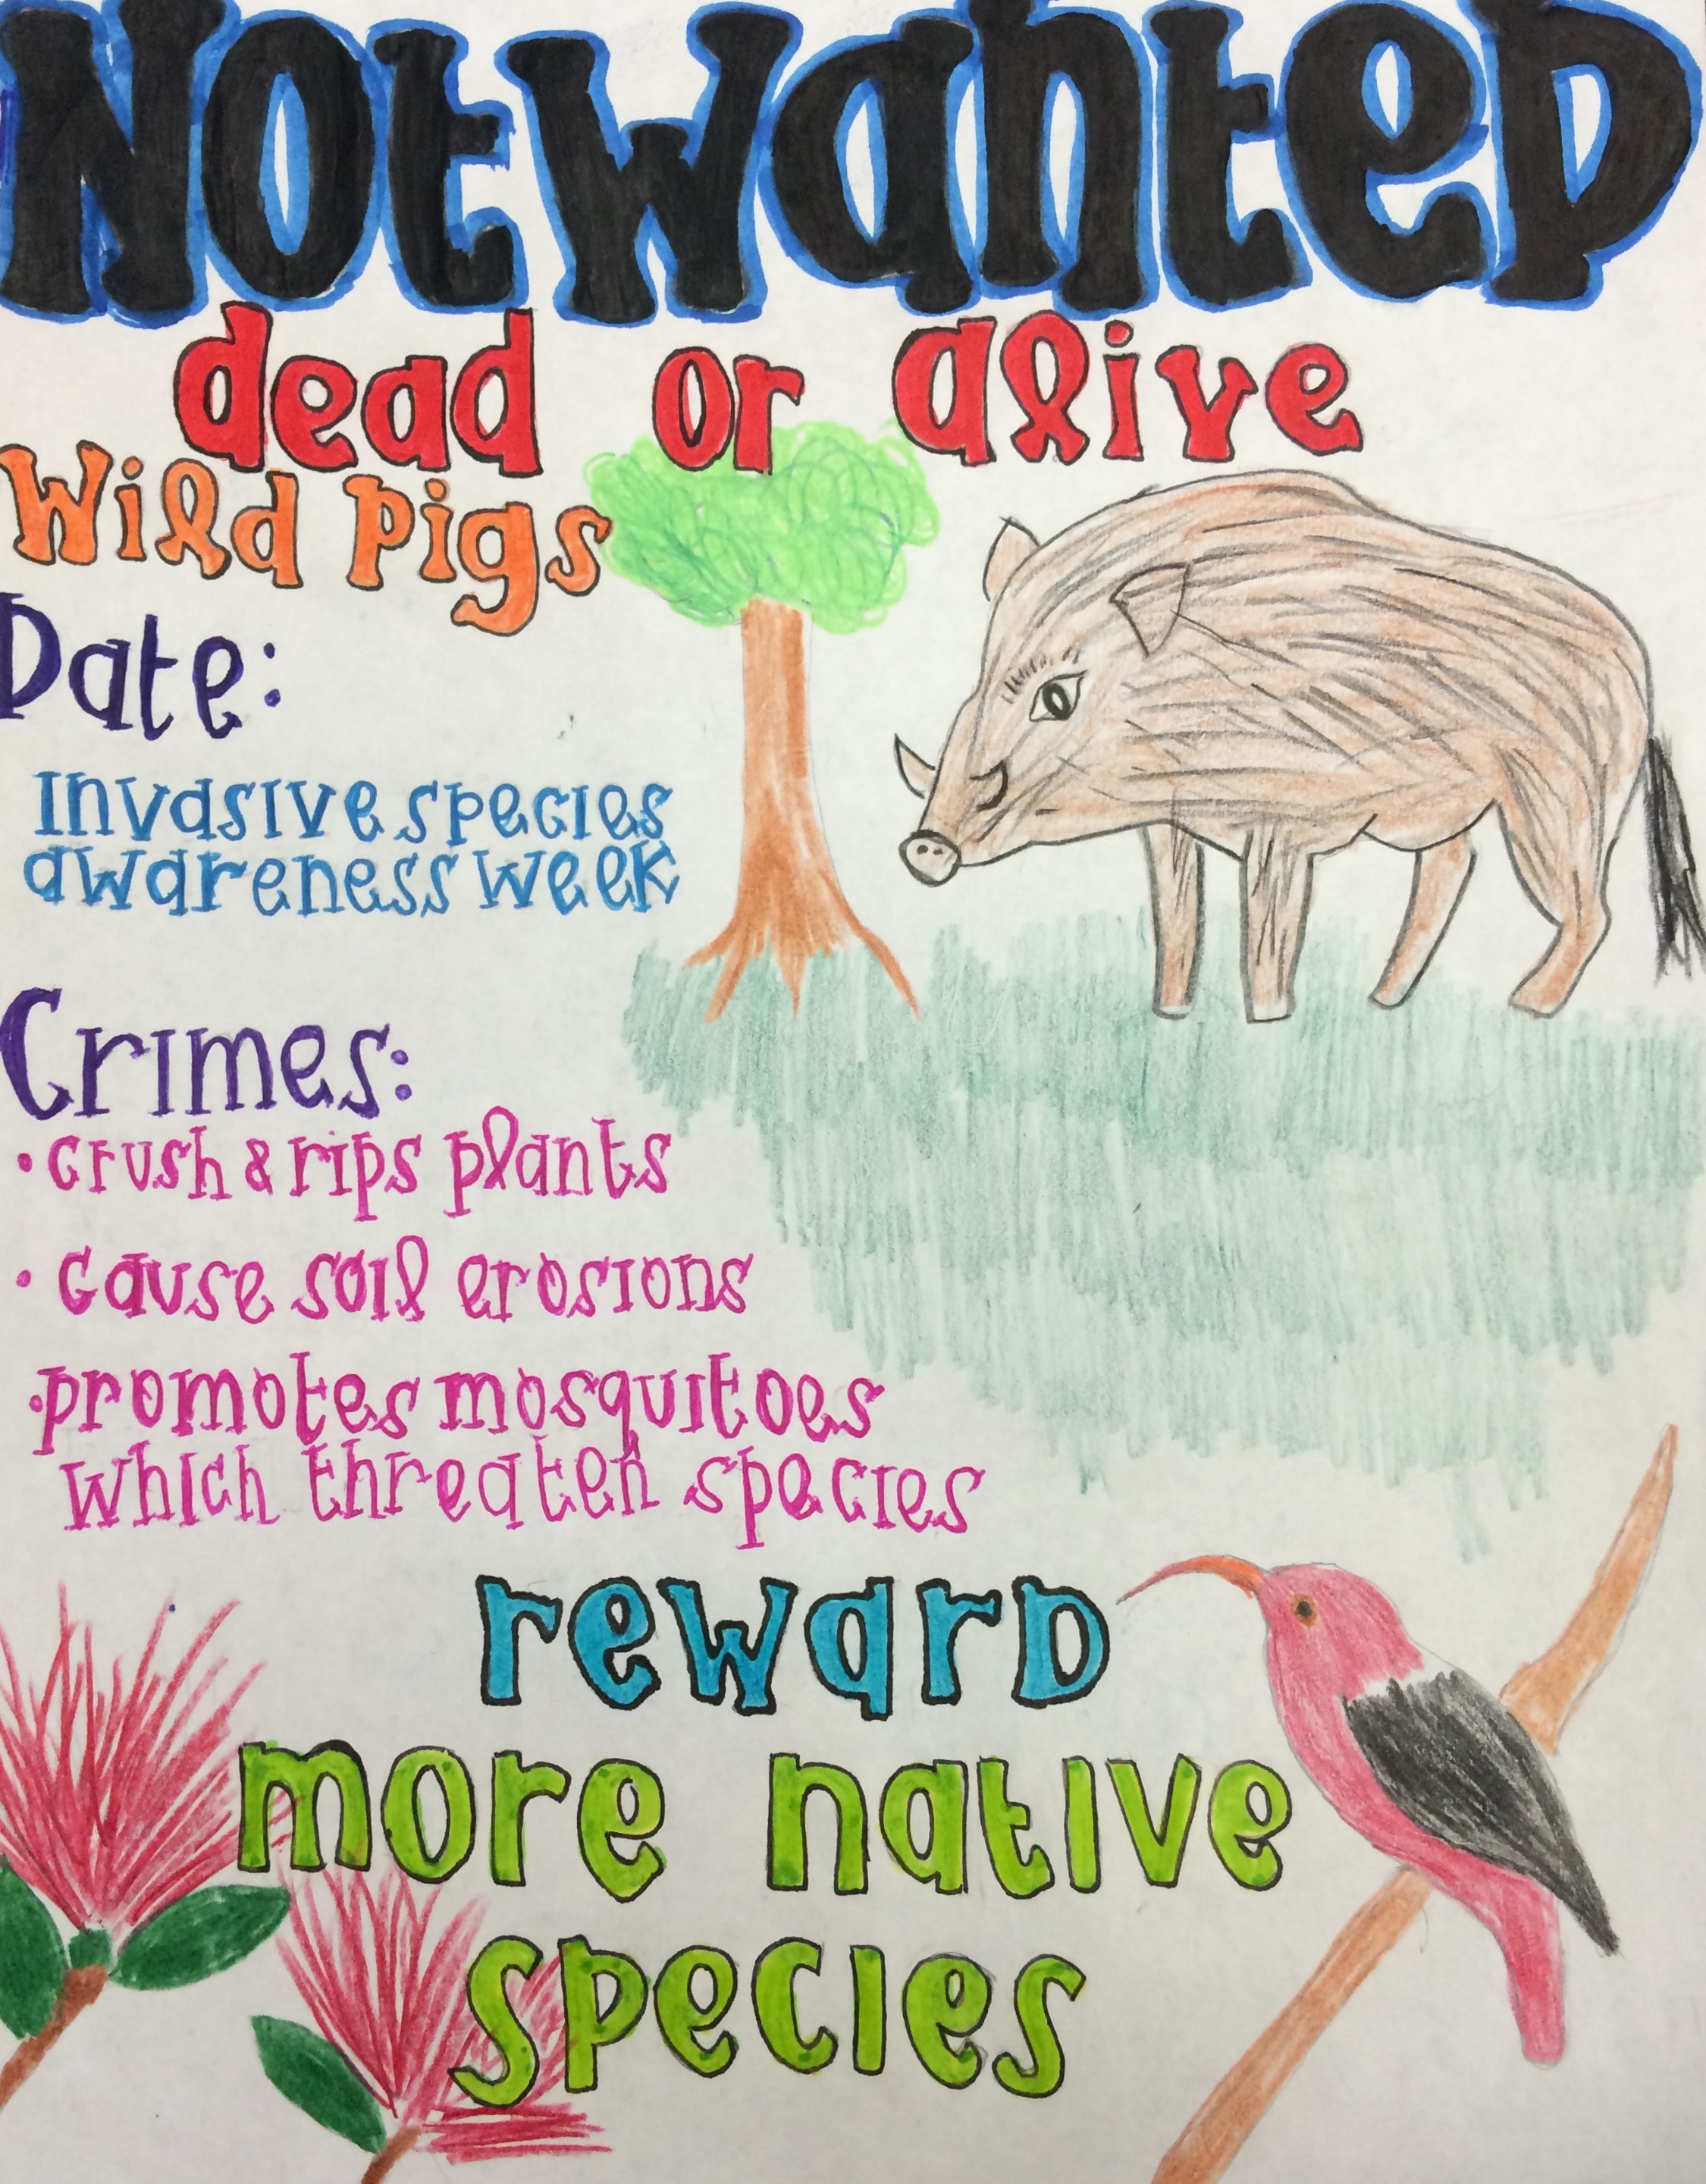 Not Wanted
dead or alive
Wild Pigs
Date:
Invasive species
awareness week
Crimes:
• crush & rips plants
• cause soil erosions
• promotes mosquitoes
which threaten species
reward
more native
species